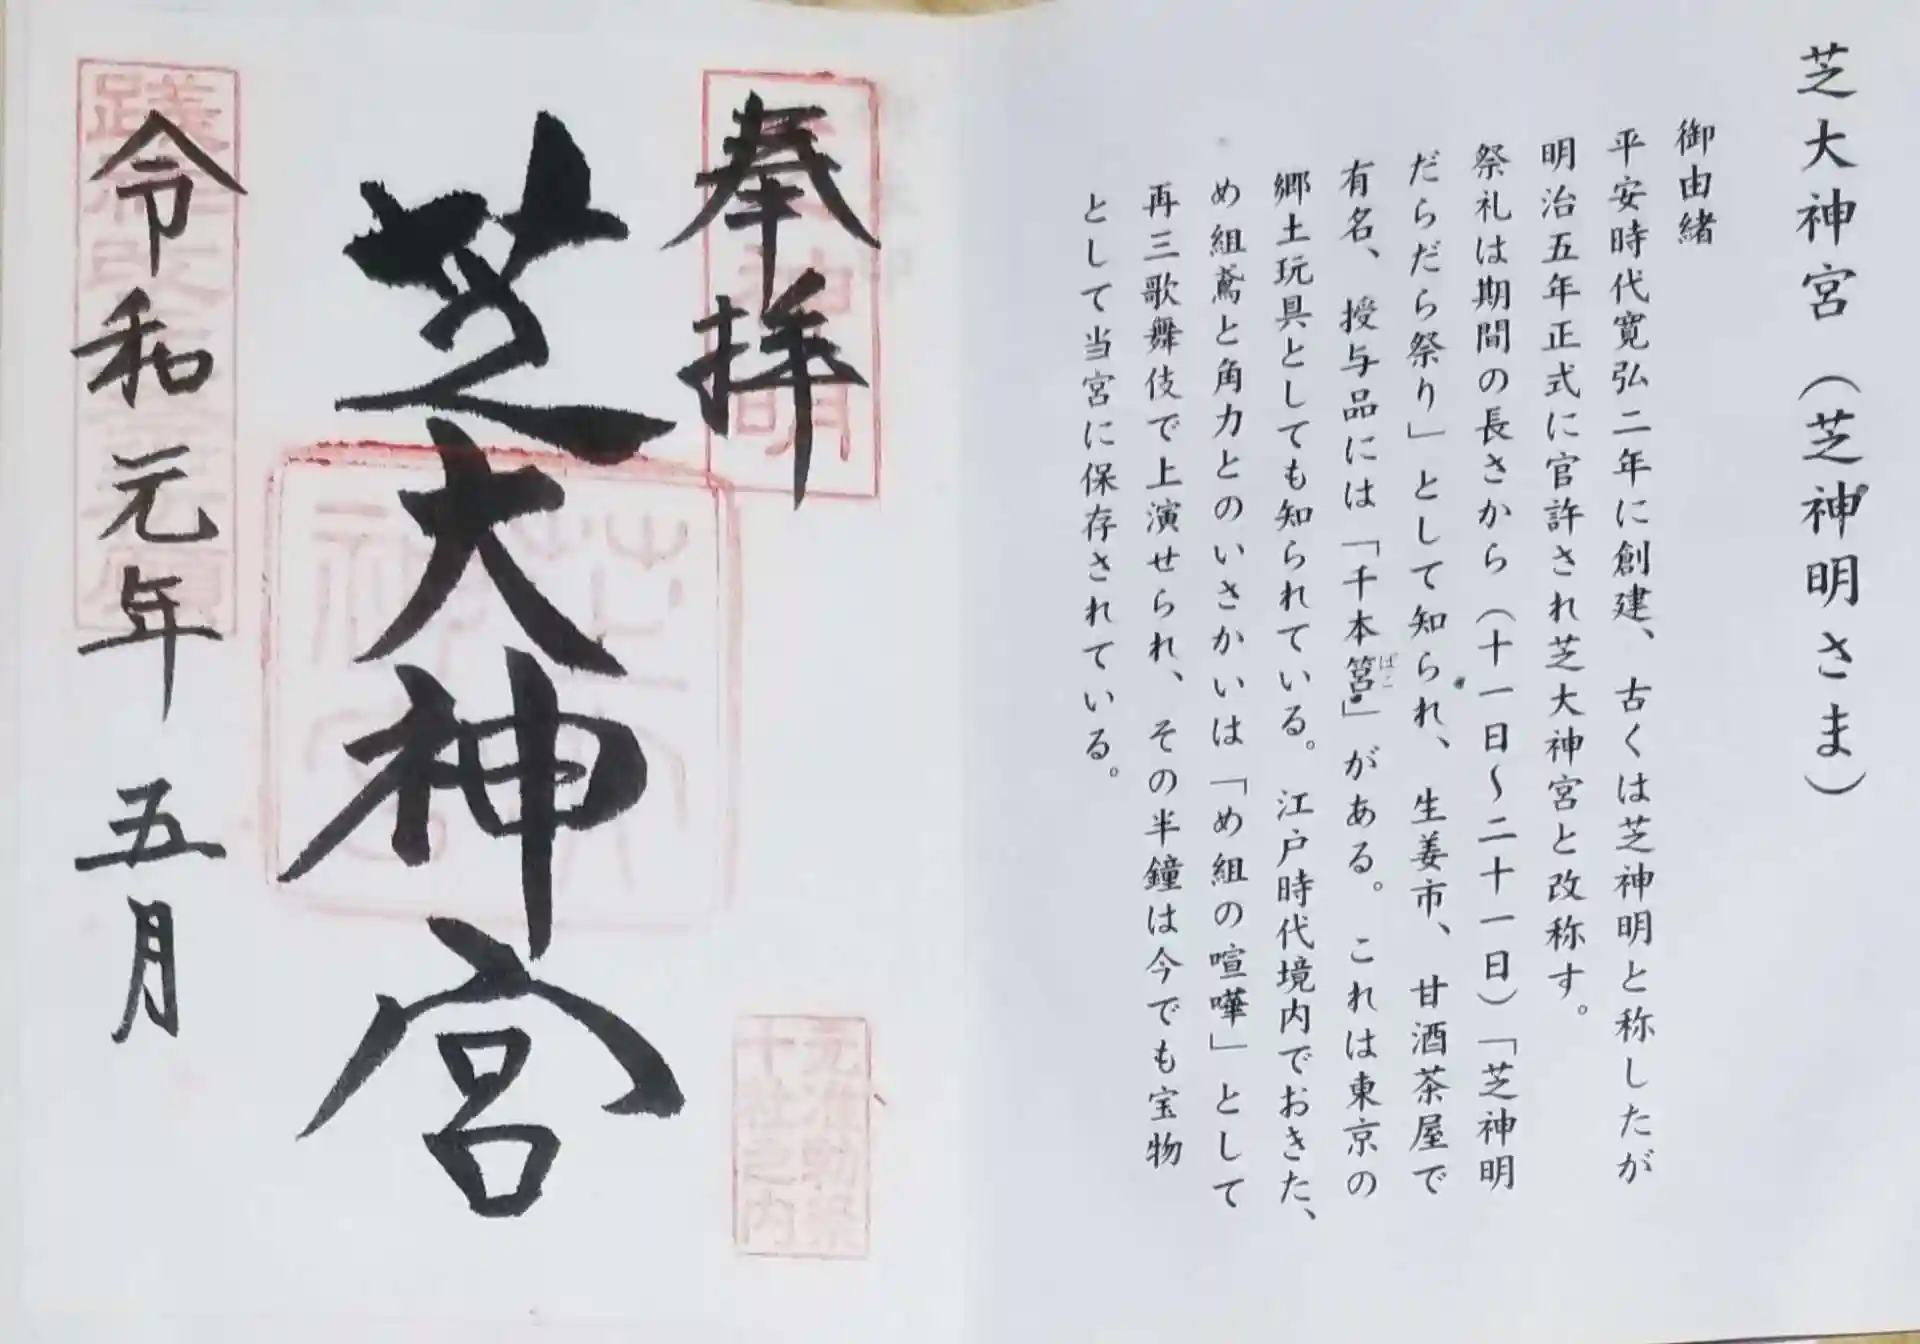 芝大神宮（芝神明さま）
御由緒
平安時代寛弘二年に創建、古くは芝神明と称したが
明治五年正式に官許され芝大神宮と改称す。
祭礼は期間の長さから（十一日～二十一日）「芝神明
だらだら祭り」として知られ、生姜市、甘酒茶屋で
有名、授与品には「千本筥」がある。これは東京の
ばこ
郷土玩具としても知られている。江戸時代境内でおきた、
め組鳶と角力とのいさかいは「め組の喧嘩」として
再三歌舞伎で上演せられ、その半鐘は今でも宝物
として当宮に保存されている。
奉拝
芝大神宮
令和元年五月
元准勅祭
十社之内